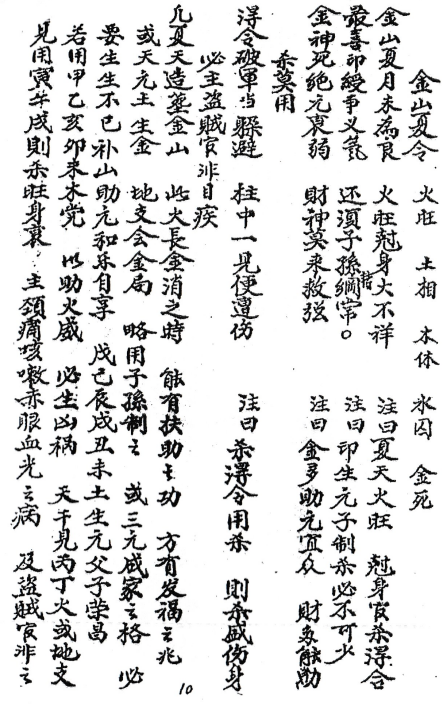 金山夏令 火旺 土相 木休 水囚 金死
金山夏月未為良 火旺尅身大不祥 注曰夏天火旺 尅身官杀得合
最喜印綬爭义氣 还須子孫綱常。 注曰印生元子制杀必不可少
金神死絕元衰弱 財神莫来救强 注曰 金多助元宜众 財多能助
杀莫用
得令破軍当躲避 柱中一見便遭伤 注曰 杀得令用杀 則杀盛伤身
必主盜贼官非目疾
凡夏天造塟金山 此火長金消之時 能有扶助之功 方有发福之兆
或天元土生金 地支会金局 略用子孫制之 或三元成家之格 必
要生生不已 补山助元和乐自享 戊己辰戌丑未土生元父子荣昌
若用甲乙亥卯未木党 以助火威 必生凶祸 天干見丙丁火或地支
見用寅午戌則杀旺身衰 主頷癆咳嗽赤眼血光之病 及盜贼官非之
10